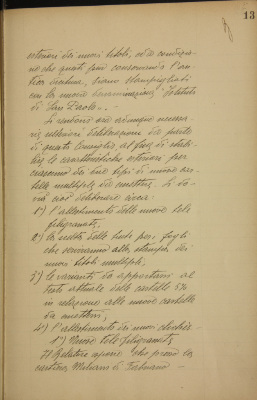 13
esteriori dei nuovi titoli, ed è
no che questi pur conservando l'an-
tica dicitura, siano stampigliati
con la nuova denominazione "Istituto
di San Paolo". -
Si rendono ora adunque neces-
sarie ulteriori deliberazioni da parte
di questo Consiglio, al fine di stabi-
lire le caratteristiche esteriori per
ciascuno dei due tipi di nuove car-
telle multiple da emettere. Si do-
vrà cioè deliberare circa:
1°) l'allestimento delle nuove tele
filigranate,
2°) la scelta delle tinte per i fogli
che serviranno alla stampa dei
nuovi titoli multipli;
3°) le varianti da apportarsi al
testo attuale delle cartelle 5%
in relazione alle nuove cartelle
da emettersi;
4°) l'allestimento dei nuovi clichés. -
1°) Nuove tele filigranate,
Il Relatore espone che presso la
cartiera Miliani di Fabriano -